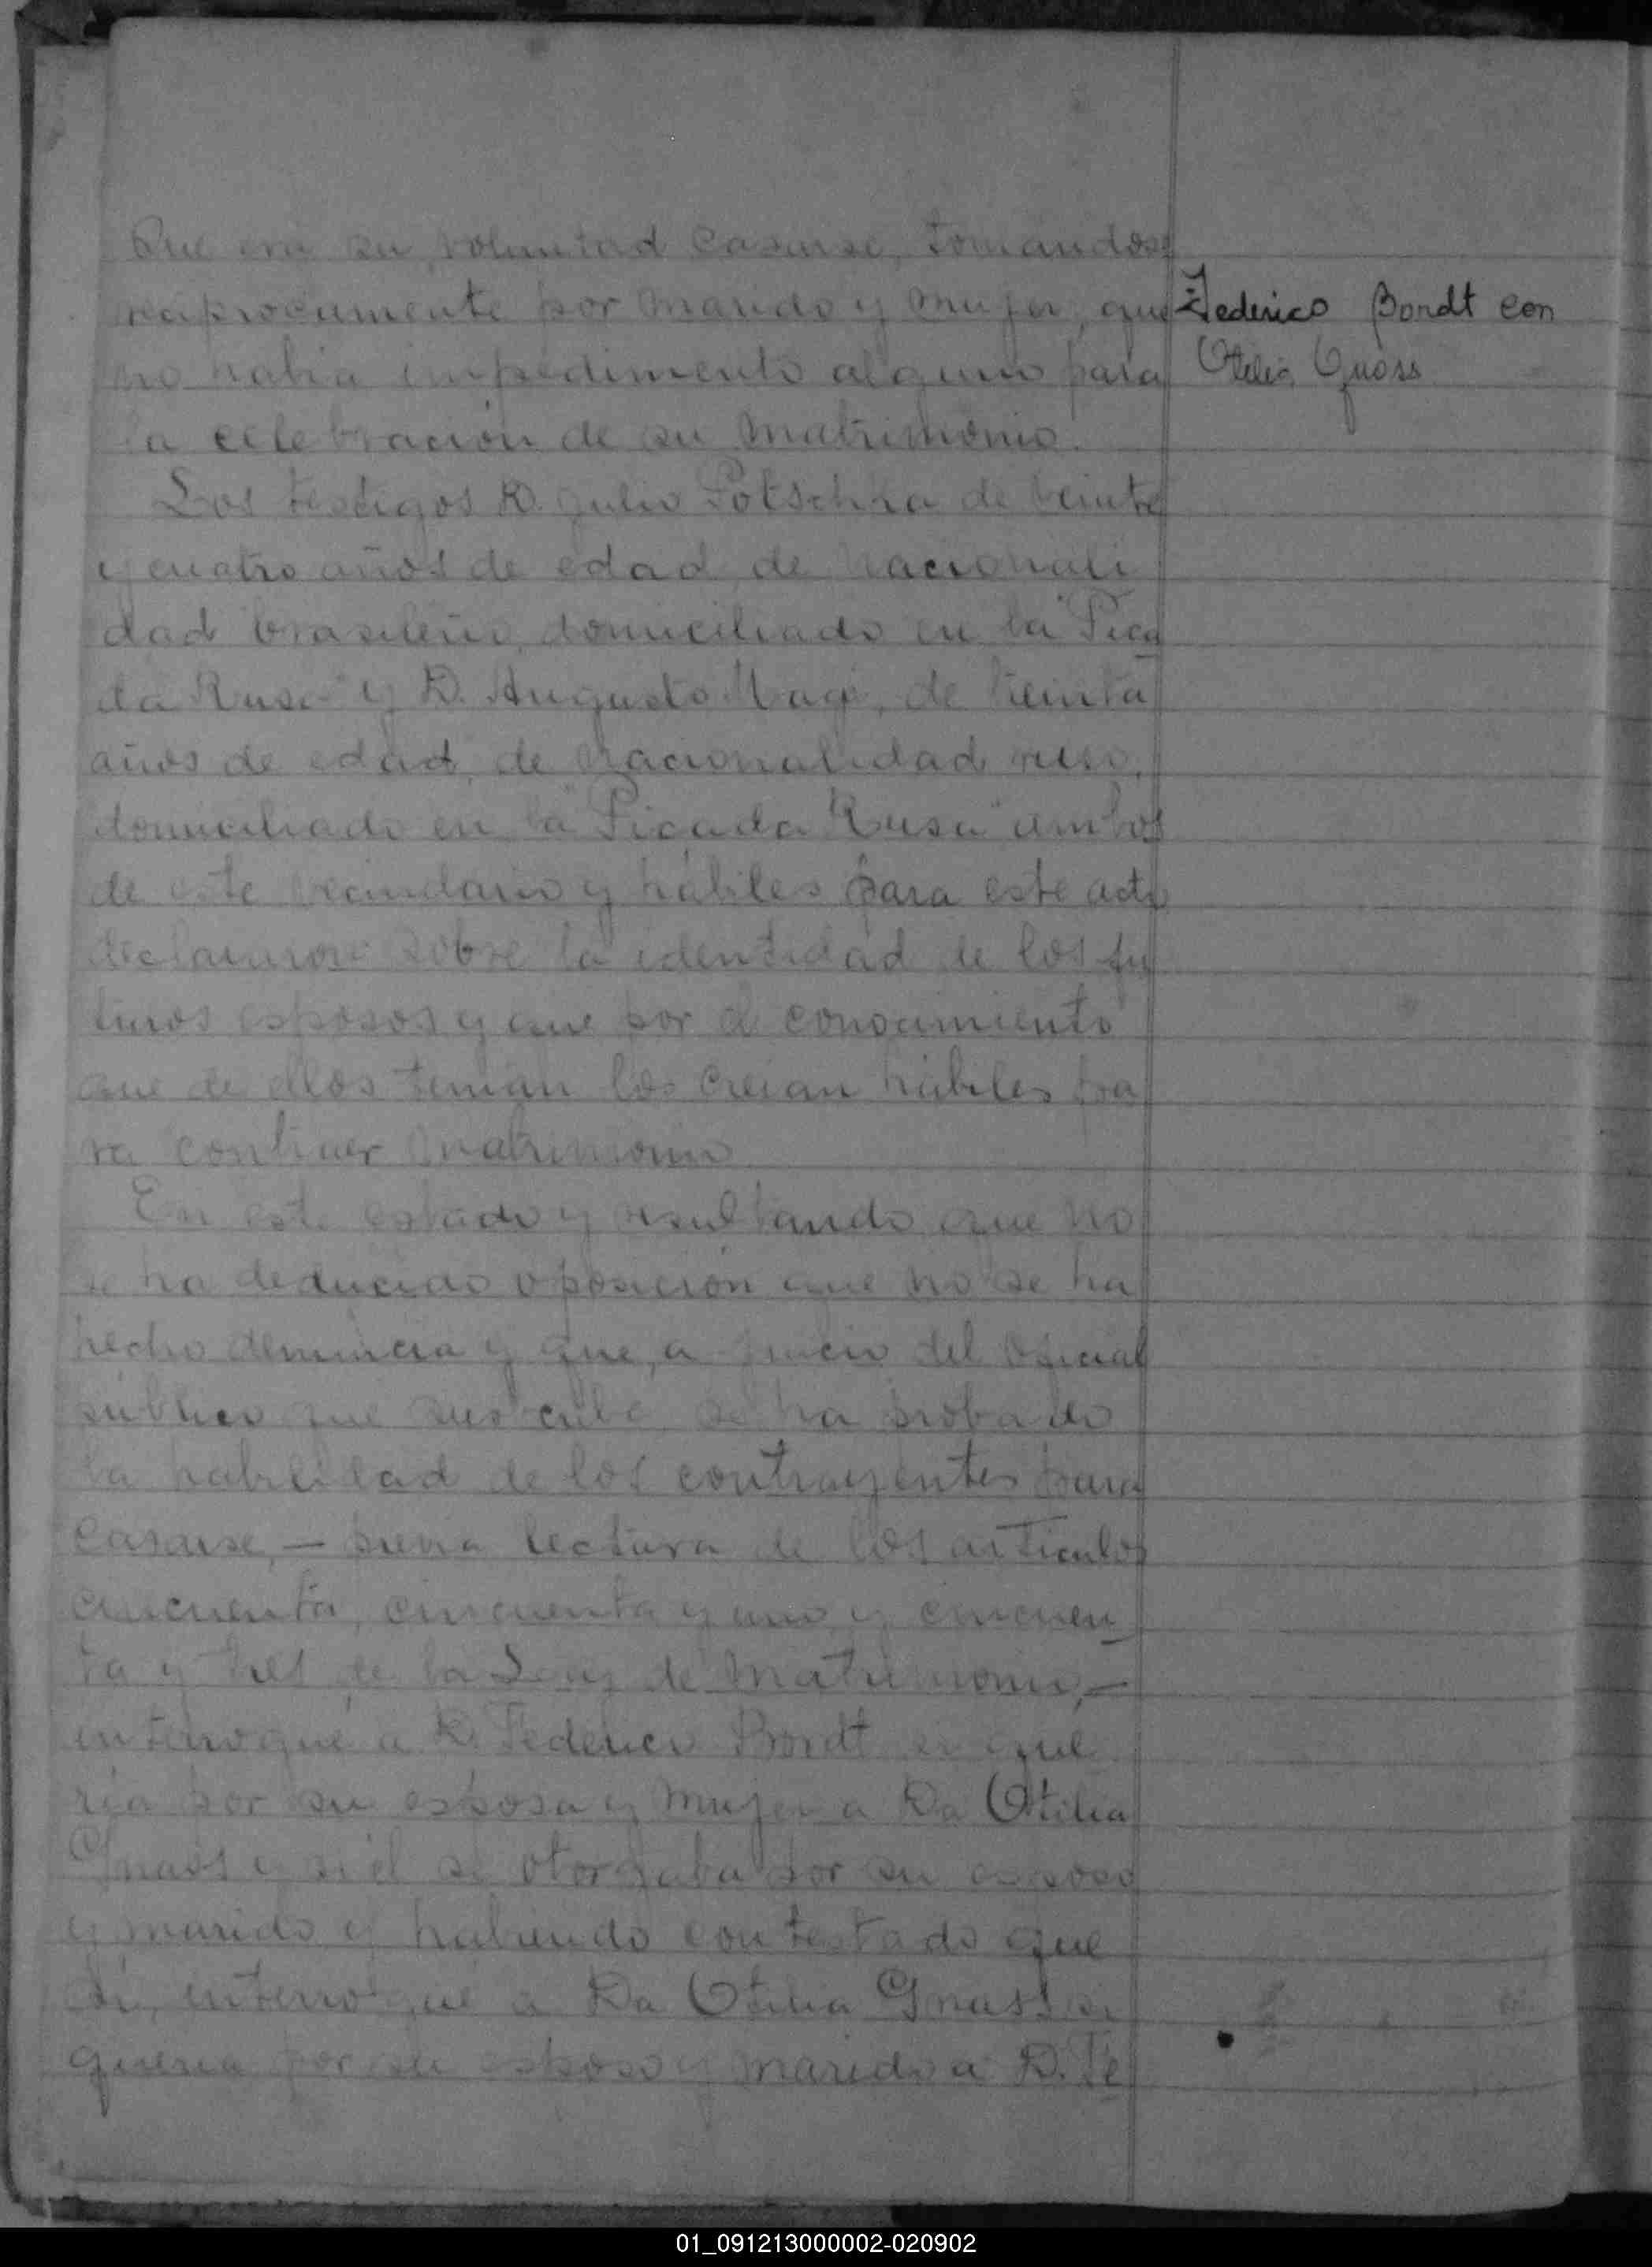 Que era su voluntad casarse, tomandose
reciprocamente por marido y mujer, que
no habia impedimento alguno para
la celebración de su matrimonio.
Federico Bondt con
Otilia Gnass
Los testigos D. Julio Potschka de veinte
y cuatro años de edad, de nacionali
dad brasileño, domiciliado en la "Pica
da Rusa" y D. Augusto de treinta
años de edad, de nacionalidad ruso,
domiciliado en la "Picada Rusa" ambos
de este vecindario y hábiles para este acto
declararon sobre la identidad de los fu
turos esposos y que por el conocimiento
que de ellos tenian los creian hábiles pa
ra contraer matrimonio
En este estado y resultando que no
se ha deducido oposición que no se ha
hecho denuncia y que, a juicio del oficial
público que suscribe se ha probado
la habilidad de los contrayentes para
casarse, — previa lectura de los articulos
cincuenta, cincuenta y uno y cincuen
ta y tres de la Ley de Matrimonio, —
interrogué a D. Federico Bondt si que
ria por su esposa y mujer a Da Otilia
Gnass y si él se otorgaba por su esposo
y marido y habiendo contestado que
si, interrogué a Da Otilia Gnass si
queria por su esposo y marido a D. Fe
01_091213000002-020902